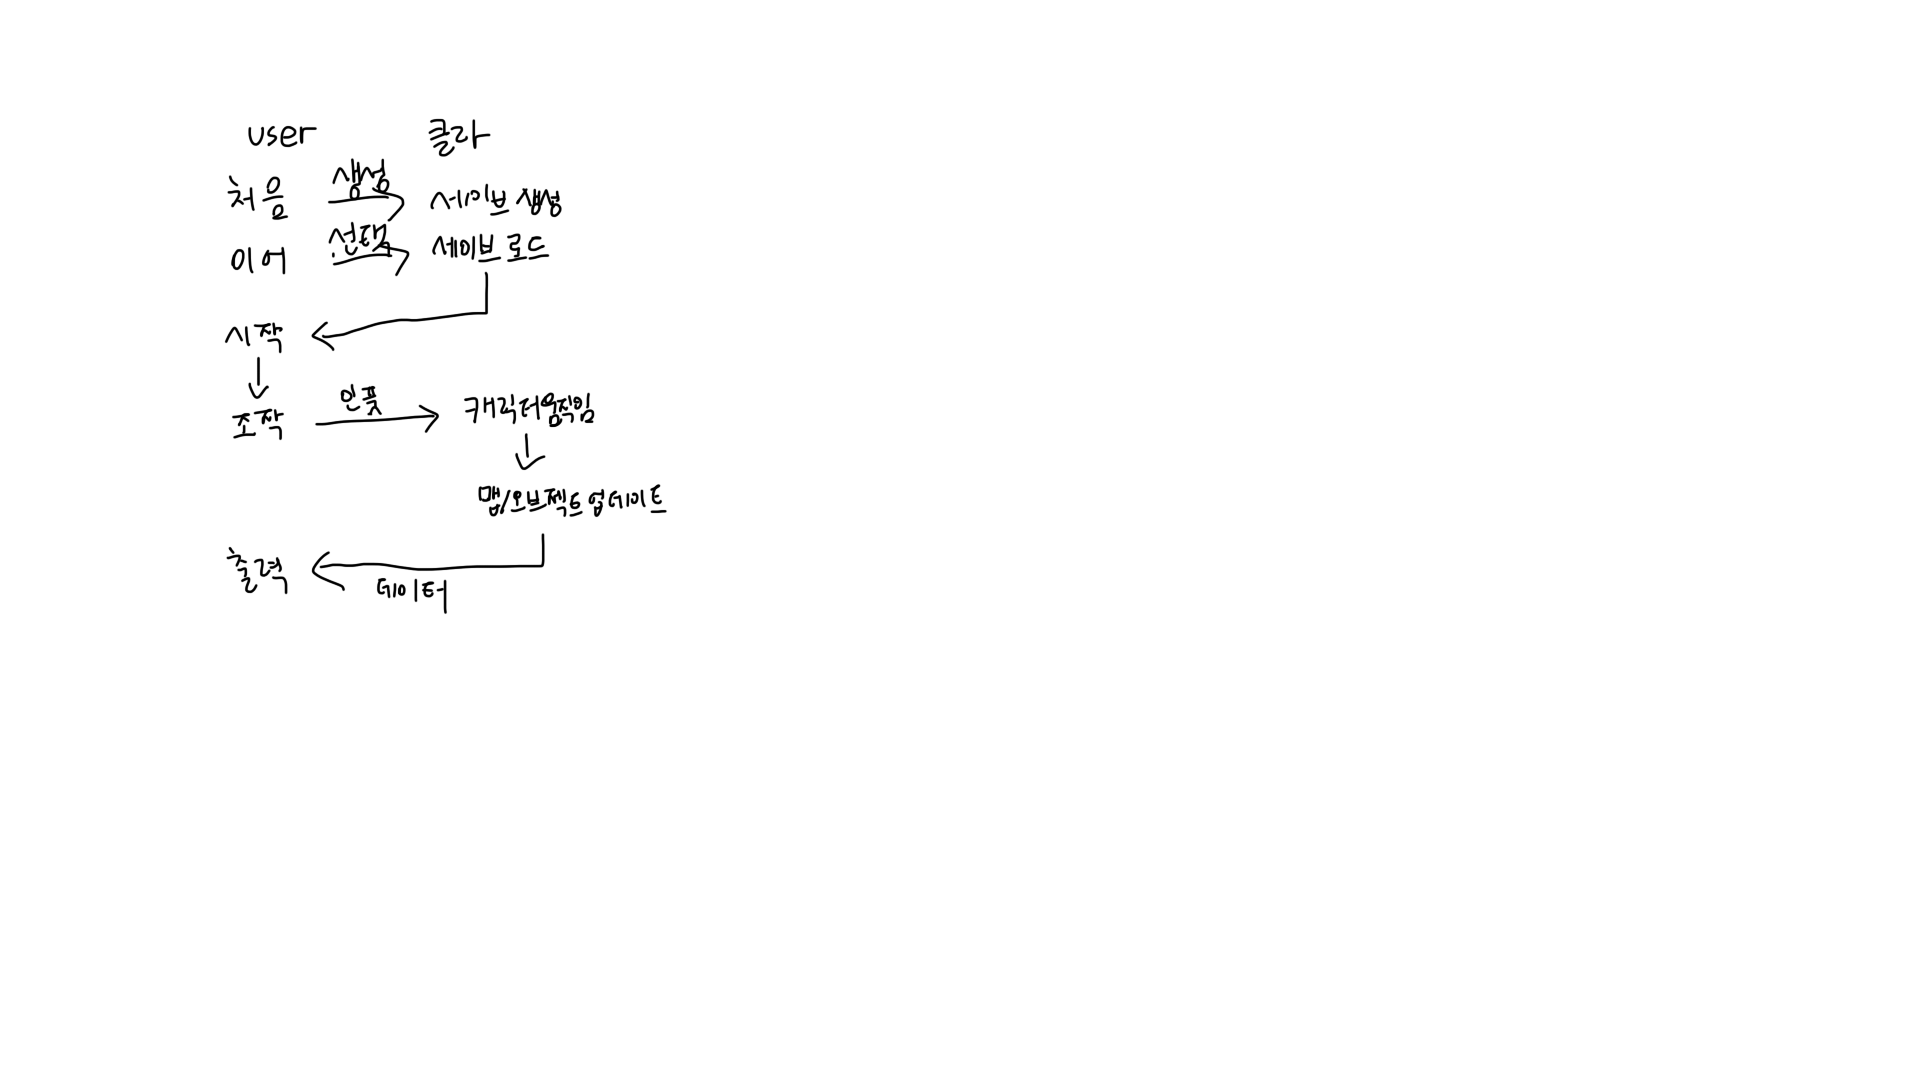 user 클라
처음 생성 세이브 생성
이어 선택 세이브 로드
시작
조작 인풋 캐릭터 움직임
맵/오브젝트 업데이트
출력 데이터